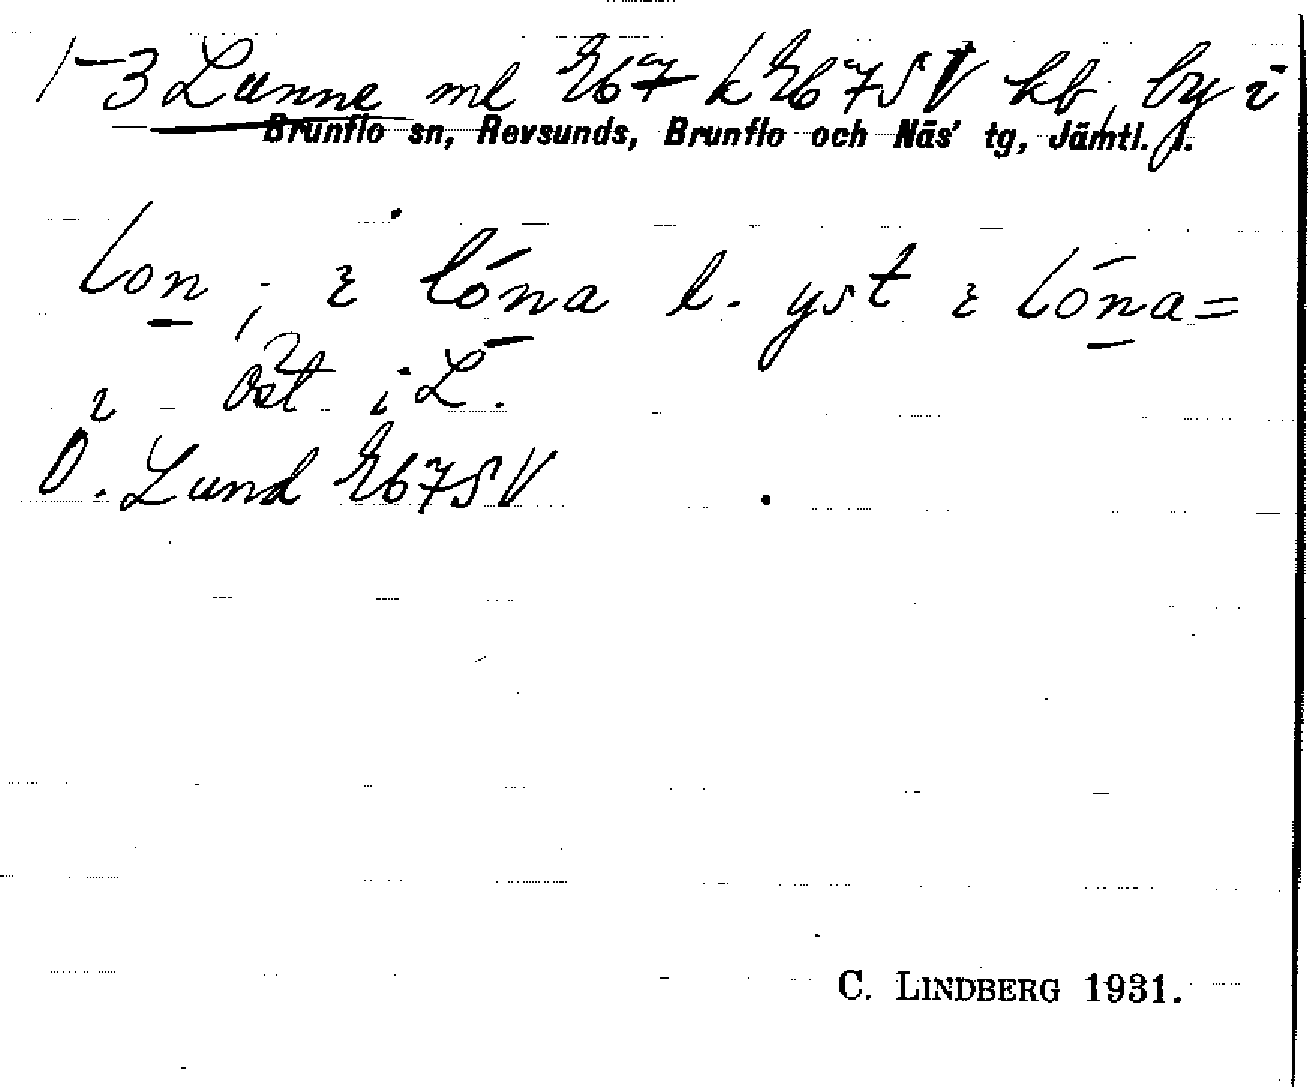 1-3 Lunne ml Eb7 k Eb7SV kb, by i
Brunflo sn, Revsunds, Brunflo och Näs' tg, Jämtl. l.
lon; ɩ lóna l. yst ɩ lóna =
ɩ öst i L.
O. Lund Eb7SV
C. LINDBERG 1931.